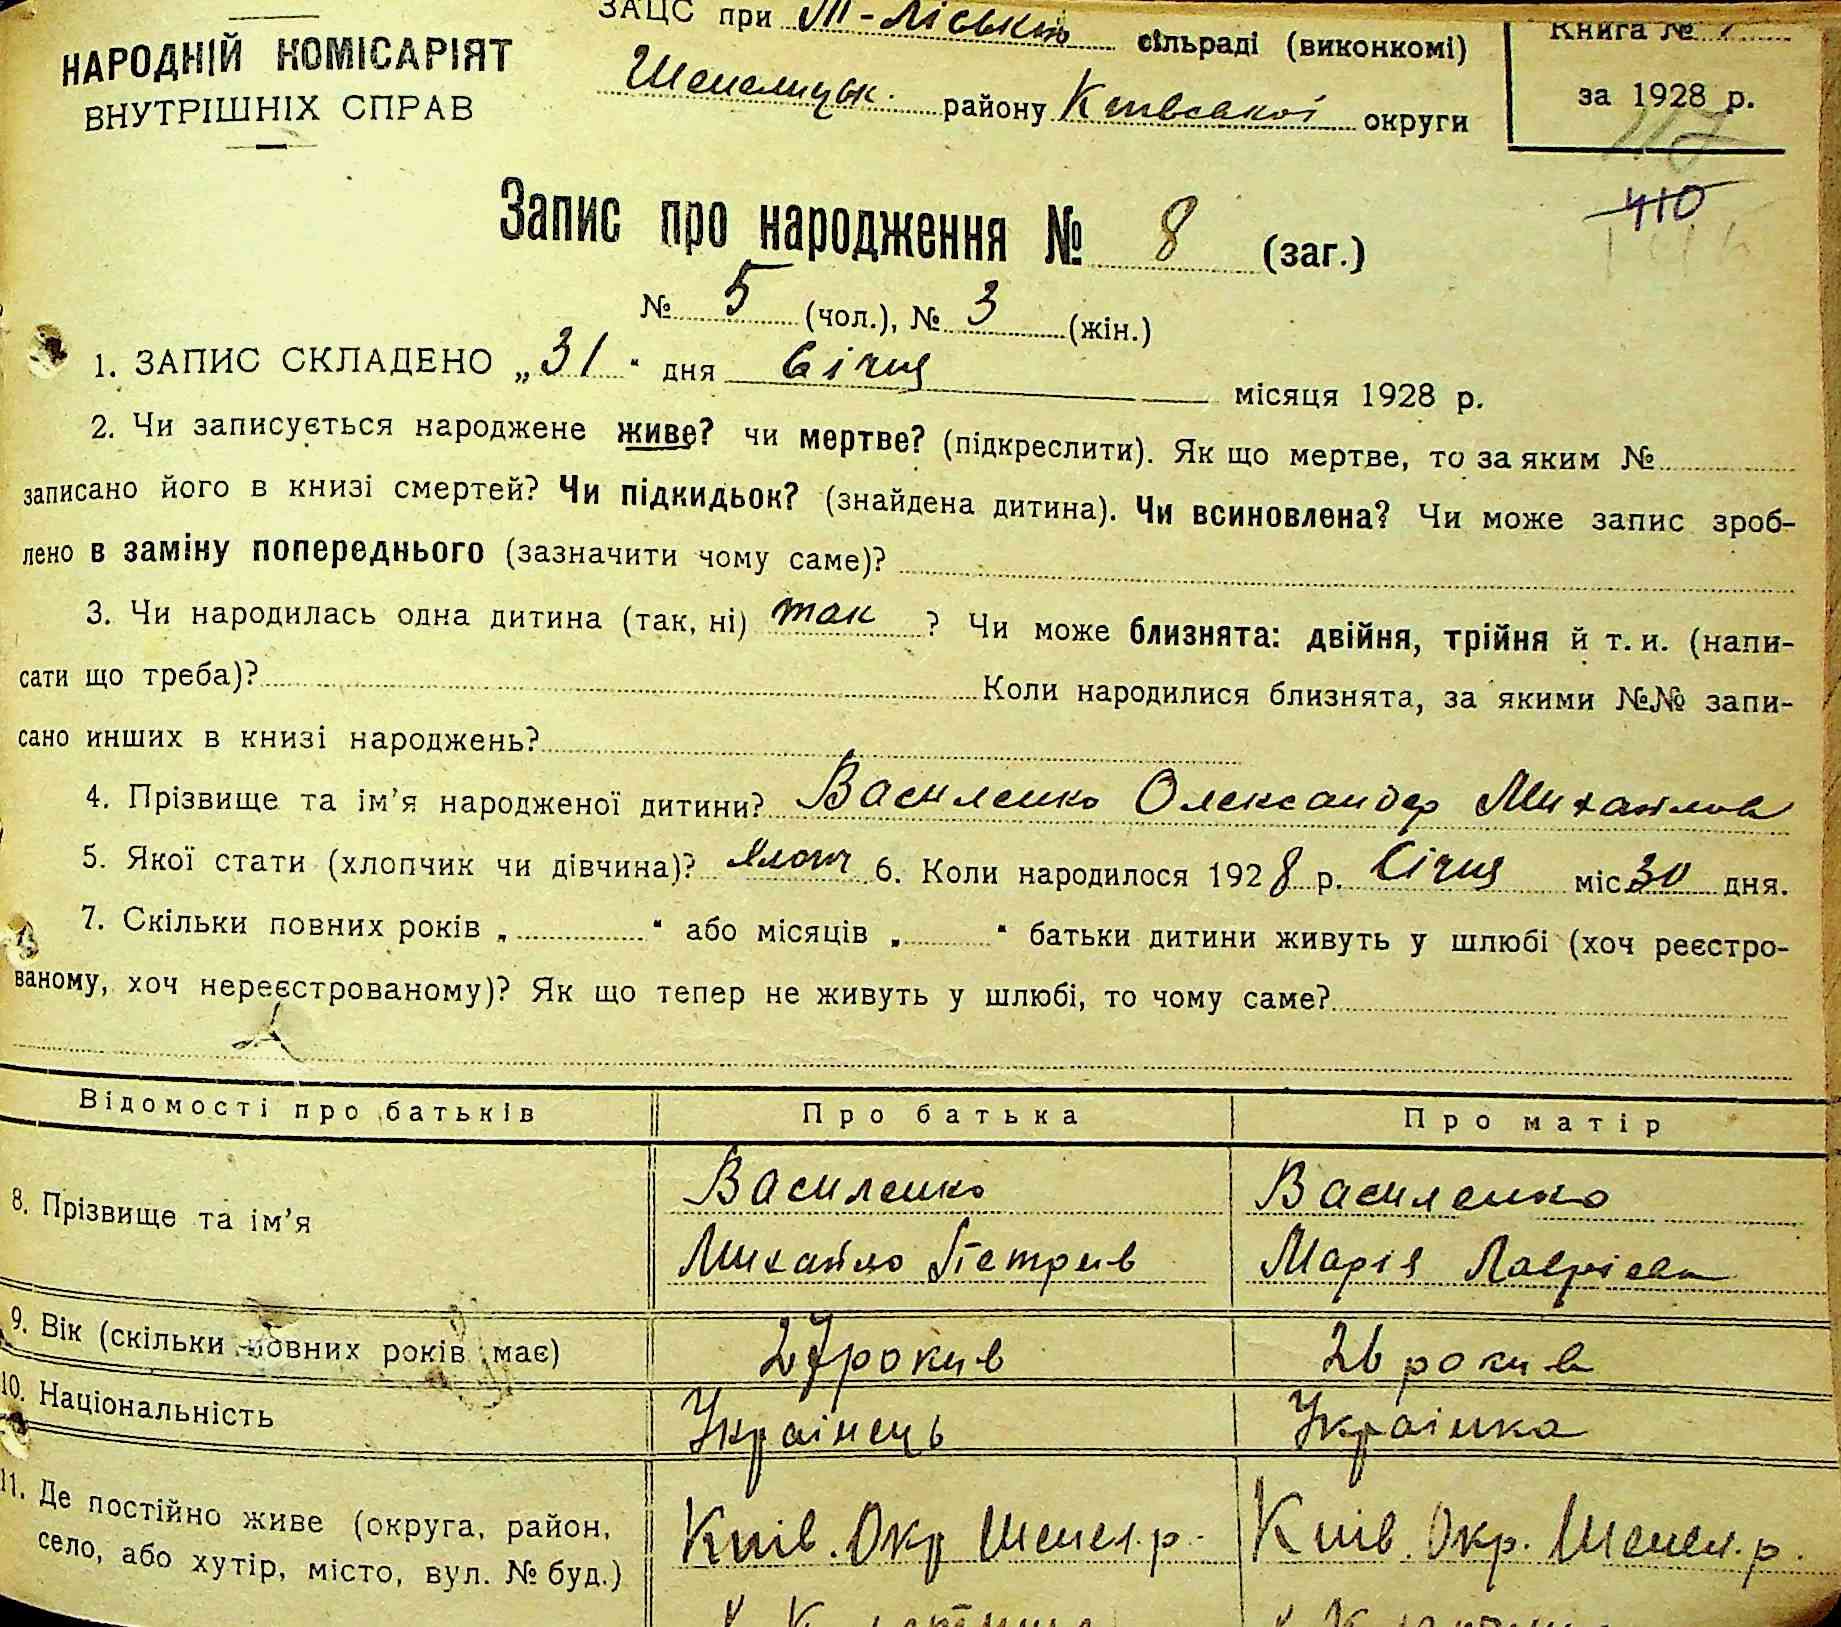 НАРОДНІЙ КОМІСАРІЯТ
ВНУТРІШНІХ СПРАВ
ЗАЦС при Т-Ліській сільраді (виконкомі)
Шепелицьк. району Київської округи
Книга №
за 1928 р.
410
Запис про народження № 8 (заг.)
№ 5 (чол.), № 3 (жін.)
1. ЗАПИС СКЛАДЕНО „31“ дня Січня місяця 1928 р.
2. Чи записується народжене живе? чи мертве? (підкреслити). Як що мертве, то за яким №
записано його в книзі смертей? Чи підкидьок? (знайдена дитина). Чи всиновлена? Чи може запис зроб-
лено в заміну попереднього (зазначити чому саме)?
3. Чи народилась одна дитина (так, ні) так ? Чи може близнята: двійня, трійня й т. и. (напи-
сати що треба)? Коли народилися близнята, за якими №№ запи-
сано инших в книзі народжень?
4. Прізвище та ім’я народженої дитини? Василенко Олександер Михайлов
5. Якої стати (хлопчик чи дівчина)? хлопч 6. Коли народилося 1928 р. Січня міс 30 дня.
7. Скільки повних років „ “ або місяців „ “ батьки дитини живуть у шлюбі (хоч реєстро-
ваному, хоч нереєстрованому)? Як що тепер не живуть у шлюбі, то чому саме?
Відомості про батьків Про батька Про матір
8. Прізвище та ім’я
Василенко
Михайло Петрив
Василенко
Марія Лавріева
9. Вік (скільки повних років має) 27 рокив 26 рокив
10. Національність Украінець Украінка
11. Де постійно живе (округа, район,
село, або хутір, місто, вул. № буд.)
Киів. Окр Шепел. р.
Киів. Окр. Шепел. р.